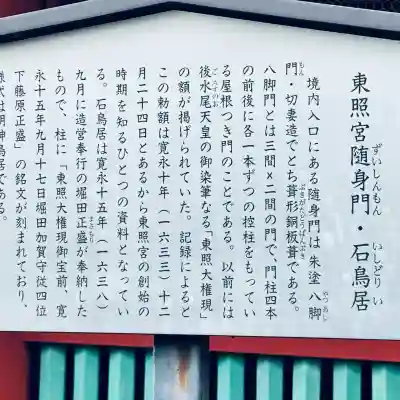 東照宮随身門・石鳥居
ずいしんもん
いしどりい
境内入口にある随身門は朱塗八脚
やつあし
門・切妻造でとち葺形銅板葺である。
もん
ぶきがたどうばんぶき
八脚門とは三間×二間の門で、門柱四本
の前後に各一本ずつの控柱をもってい
る屋根つき門のことである。以前には
後水尾天皇の御染筆なる「東照大権現」
ごみずのお
の額が掲げられていた。記録によると
この勅額は寛永十年(一六三三)十二
月二十四日とあるから東照宮の創始の
時期を知るひとつの資料となってい
る。石鳥居は寛永十五年(一六三八)
九月に造営奉行の堀田正盛が奉納した
まさもり
もので、柱に「東照大権現御宝前、寛
永十五年九月十七日堀田加賀守従四位
下藤原正盛」の銘文が刻まれており、
様式は明神鳥居である。